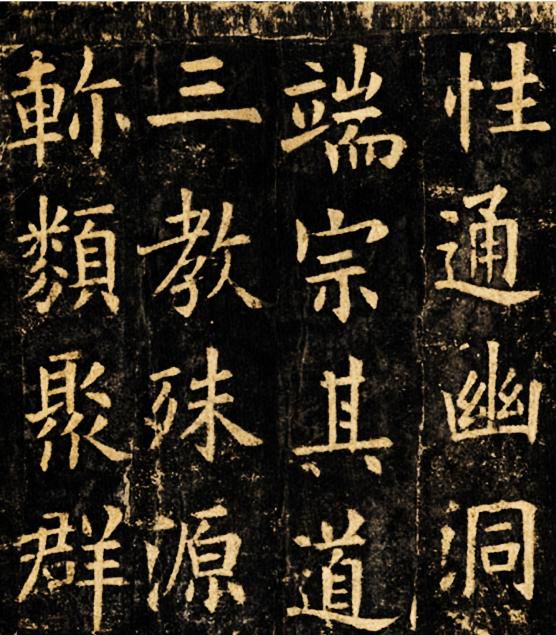 性通幽洞
端宗其道
三教殊源
軫類聚群